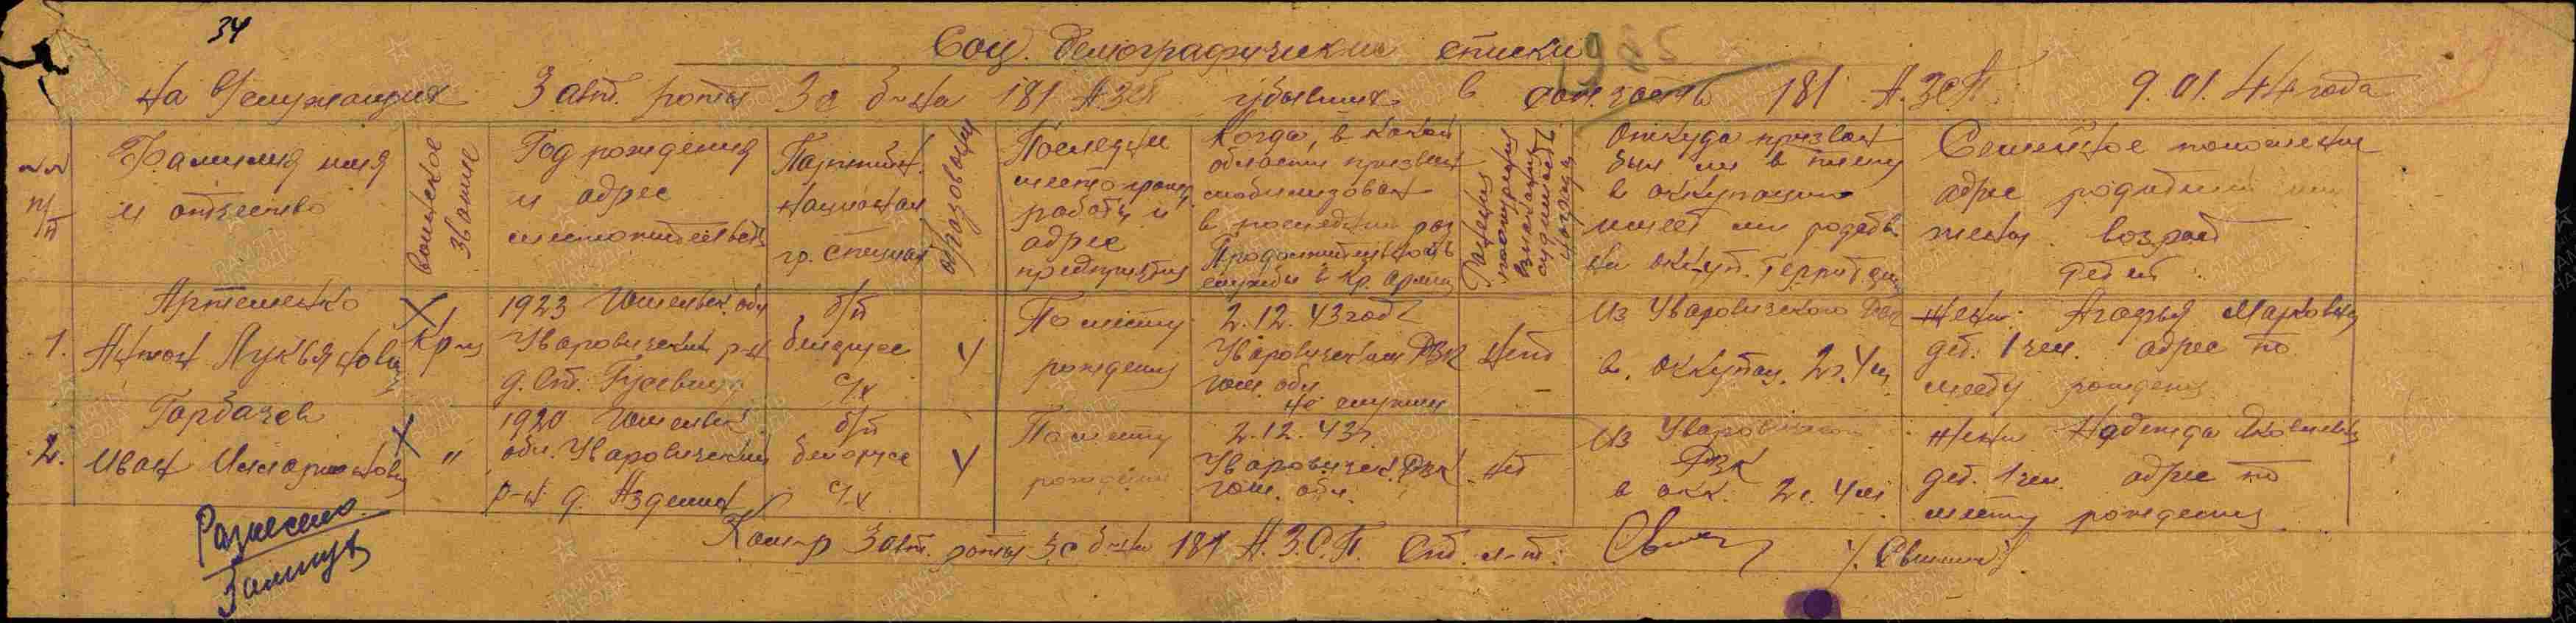 34
Соц. демографически списки
На 4 служащих 3 авт. роты 3 с б-на 181 А.ЗСП убывших в сан. часть 181 А.ЗСП. 9.01.44 года
№№ п/п
Фамилия имя
и отчество
воинское звание
Год рождения
и адрес
местожительства
Партийн.
национал
гр. специал
образован
Последнее
место
работы и
адрес
предприятия
Когда, в какой
области призван
мобилизован
в последний раз
Продолжительность
службы в Кр. армии
Ранения
Откуда призван
был ли в плену
в оккупации
имеет ли родств.
на оккуп. террит.
Семейное положение
адрес родителей или
жены. возраст
детей
1.
Артеменко
Антон Лукьянович
Кр-ц
1923 Гомельск. обл
Уваровический р-н
д. Ст. Гусевица
б/п
белорус
с/х
4
По месту
рождения
2.12.43 год
Уваровическим РВК
Гом. обл.
не служил
нет
Из Уваровического РВК
в. оккупац. 2г. 4 м
жена: Агафья Марковна
дет. 1 чел. адрес по
месту рождения
2.
Горбачев
Иван Илларионович
"
1920 Гомельск.
обл. Уваровический
р-н д.
б/п
белорус
с/х
4
По месту
рождения
2.12.43г.
Уваровическ. РВК
Гом. обл.
нет
Из Уваровического
РВК
в окк. 2г. 4 м
жена Надежда Яковлевна
дет. 1 чел. адрес по
месту рождения
Разнесено
Ком-р 3 авт. роты 3 с б-на 181 А.З.С.П. Ст. л-т: